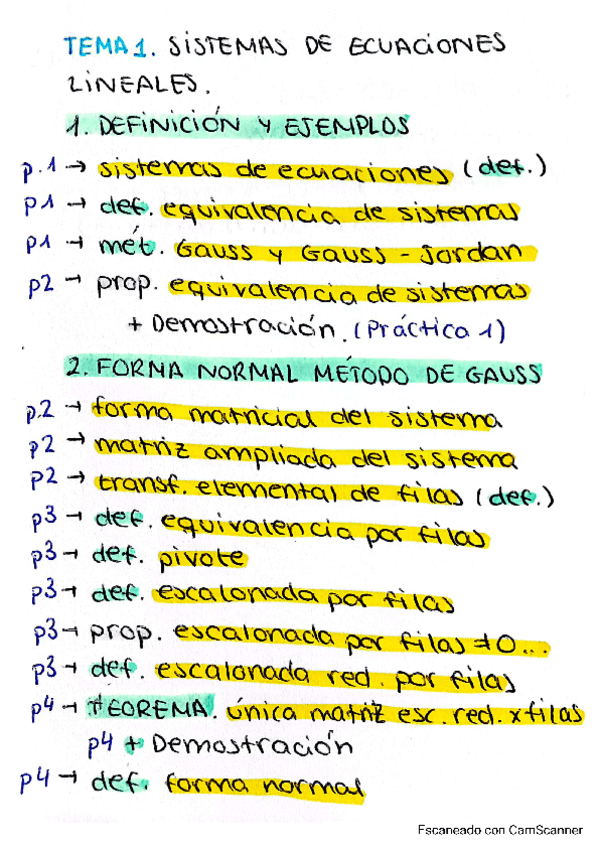 TEMA 1. SISTEMAS DE ECUACIONES
LINEALES.
1. DEFINICIÓN Y EJEMPLOS
p.1 → sistemas de ecuaciones (def.)
p1 → def. equivalencia de sistemas
p1 → mét. Gauss y Gauss - Jordan
p2 → prop. equivalencia de sistemas
+ Demostración. (Práctica 1)
2. FORMA NORMAL MÉTODO DE GAUSS
p.2 → forma matricial del sistema
p2 → matriz ampliada del sistema
p2 → transf. elemental de filas (def.)
p3 → def. equivalencia por filas
p3 → def. pivote
p3 → def. escalonada por filas
p3 → prop. escalonada por filas ≠0...
p3 → def. escalonada red. por filas
p4 → TEOREMA. única matriz esc. red. x filas
p4 + Demostración
p4 → def. forma normal
Escaneado con CamScanner